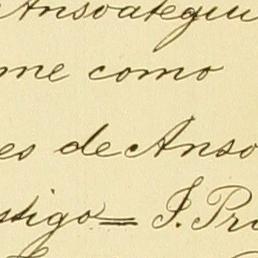 Ansoategui
me como
es de Anso
stigo= J. Pro